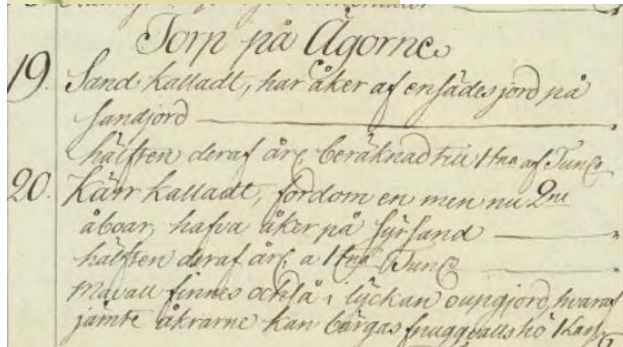 Torp på Ägorne
19. Sand kalladt, har åker af ensädes jord på
sandjord
hälften deraf årl. beräknad till 1/tna af Tun
20. Kärr kalladt, fordom en men nu 2ne
åboar, hafva åker på syrsand
hälften deraf årl. a Tun
Mavall finnes också i lyckan oupgjord, hvaraf
jämte åkrarne kan bärgas snuggvalls hö